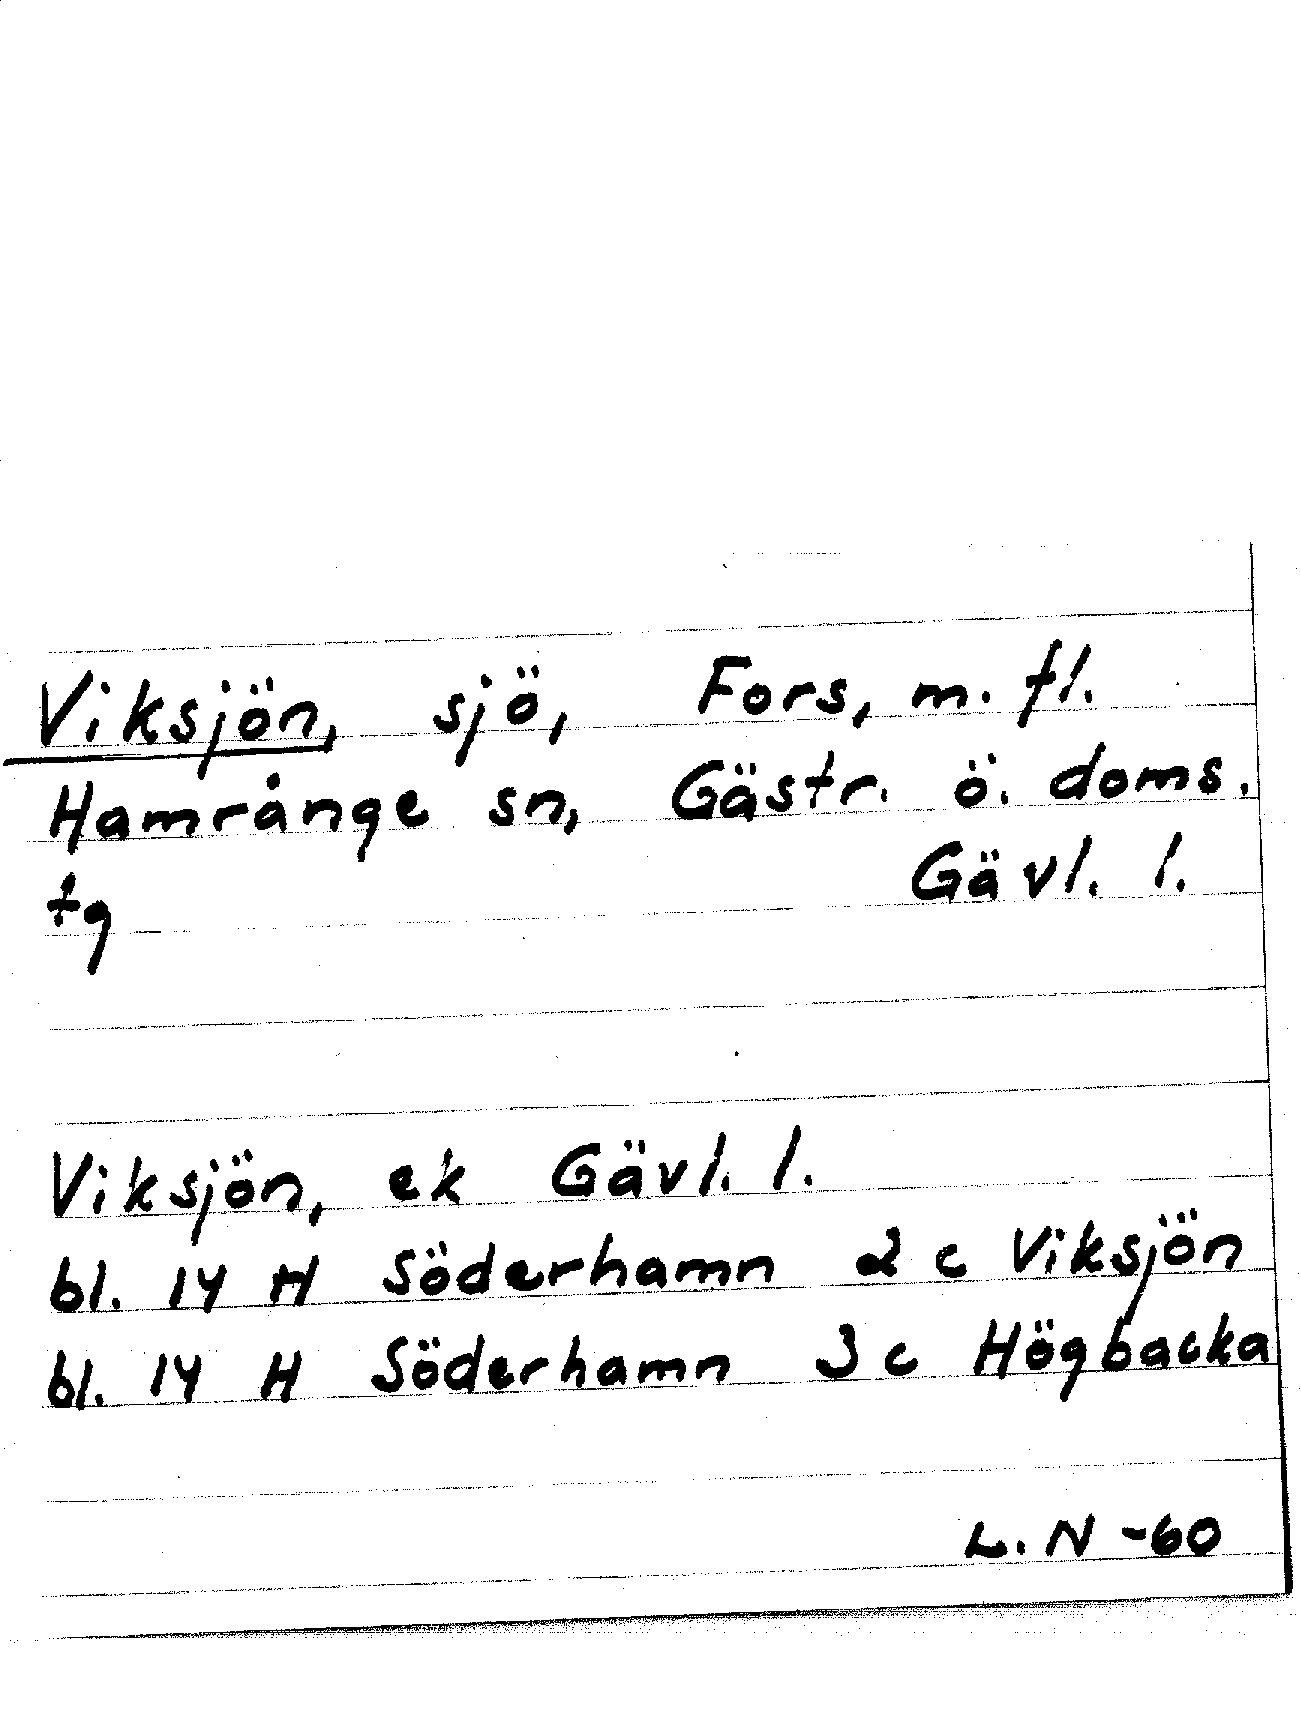 Viksjön, sjö, Fors, m. fl.
Hamrånge sn, Gästr. ö. doms.
tg Gävl. l.
Viksjön, ek Gävl. l.
bl. 14 H Söderhamn 2 c Viksjön
bl. 14 H Söderhamn 3 c Högbacka
L. N -60